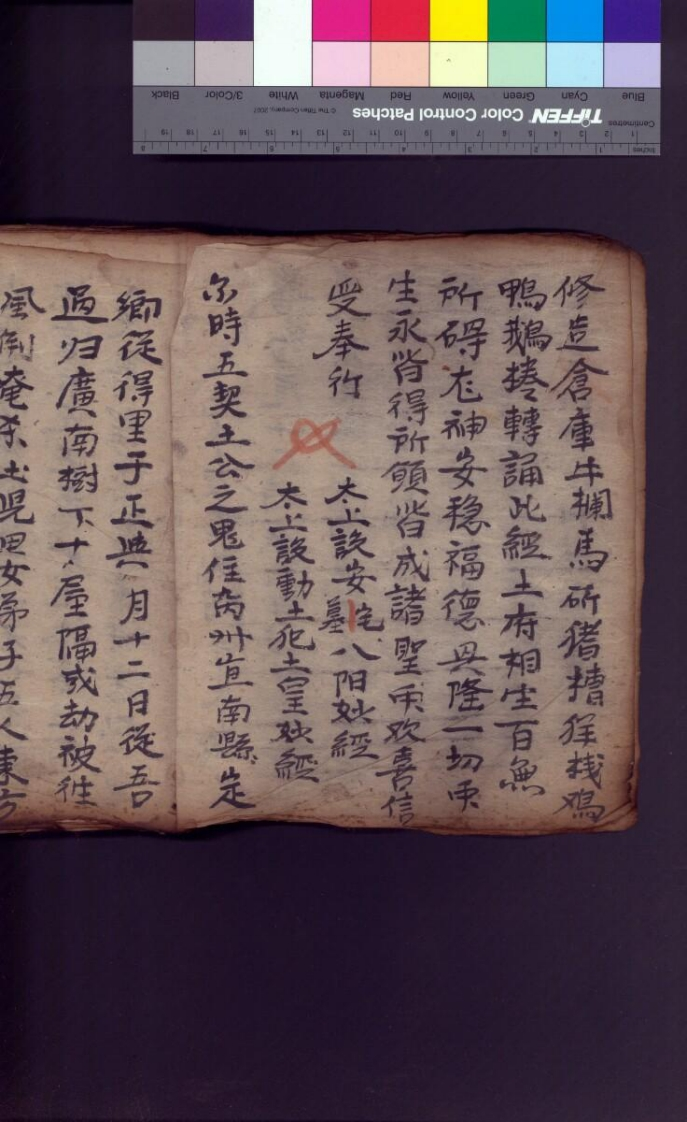 修造倉庫牛欄馬所猪槽牸栈鸡
鴨鵝捲轉誦此經土府相生百無
所碍龙神安穏福德具隆一切衆
生永皆得所願皆成諸聖衆欢喜信
受奉行
太上說安宅墓八阳妙經
太上說動土犯土皇妙經
尔時五契土公之鬼住為州宜南縣定
鄉從得里于正典月十二日從吾
過归廣南樹下十屋隔或劫被徃
風倒
男女弟子五人東方
Blue
Cyan
Green
Yellow
Red
Magenta
White
3/Color
Black
TIFFEN Color Control Patches
© The Tiffen Company, 2007
Centimetres
Inches